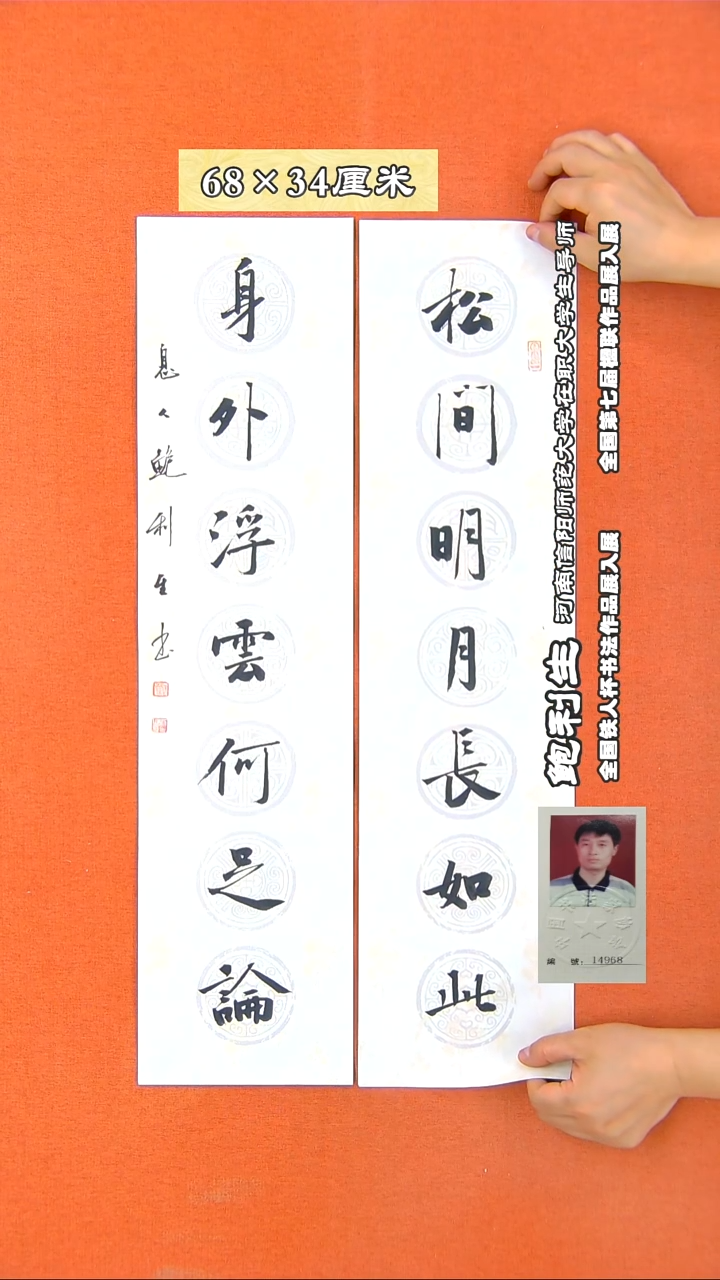 68×34厘米
松間明月長如此
身外浮雲何足論
鮑利生书
鲍利生
河南信阳师范大学在职大学生导师
全国第七届楹联作品展入展
全国铁人杯书法作品展入展
編 號：14968